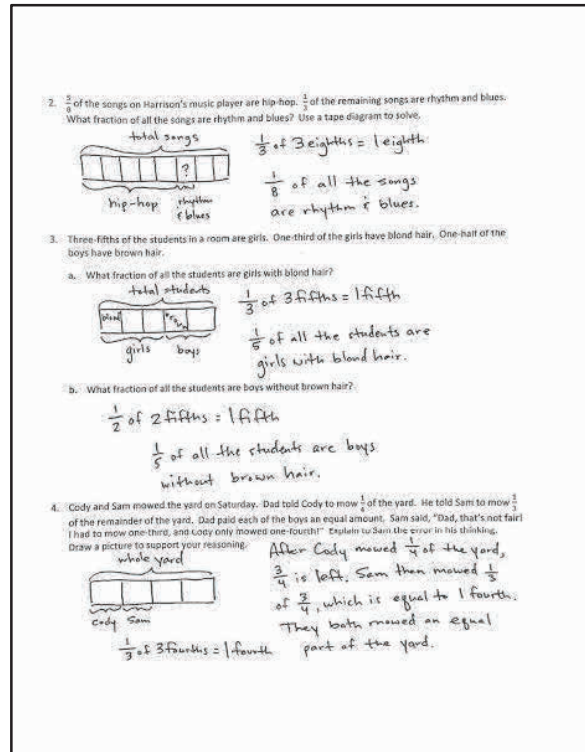 2. 5/8 of the songs on Harrison's music player are hip-hop. 1/3 of the remaining songs are rhythm and blues.
What fraction of all the songs are rhythm and blues? Use a tape diagram to solve.
total songs
?
hip-hop
rhythm & blues
1/3 of 3 eighths = 1 eighth
1/8 of all the songs
are rhythm & blues.
3. Three-fifths of the students in a room are girls. One-third of the girls have blond hair. One-half of the
boys have brown hair.
a. What fraction of all the students are girls with blond hair?
total students
blond
brown
girls
boys
1/3 of 3 fifths = 1 fifth
1/5 of all the students are
girls with blond hair.
b. What fraction of all the students are boys without brown hair?
1/2 of 2 fifths = 1 fifth
1/5 of all the students are boys
without brown hair.
4. Cody and Sam mowed the yard on Saturday. Dad told Cody to mow 1/4 of the yard. He told Sam to mow 1/3
of the remainder of the yard. Dad paid each of the boys an equal amount. Sam said, "Dad, that's not fair!
I had to mow one-third, and Cody only mowed one-fourth!" Explain to Sam the error in his thinking.
Draw a picture to support your reasoning.
whole yard
Cody Sam
1/3 of 3 fourths = 1 fourth
After Cody mowed 1/4 of the yard,
3/4 is left. Sam then mowed 1/3
of 3/4, which is equal to 1 fourth.
They both mowed an equal
part of the yard.